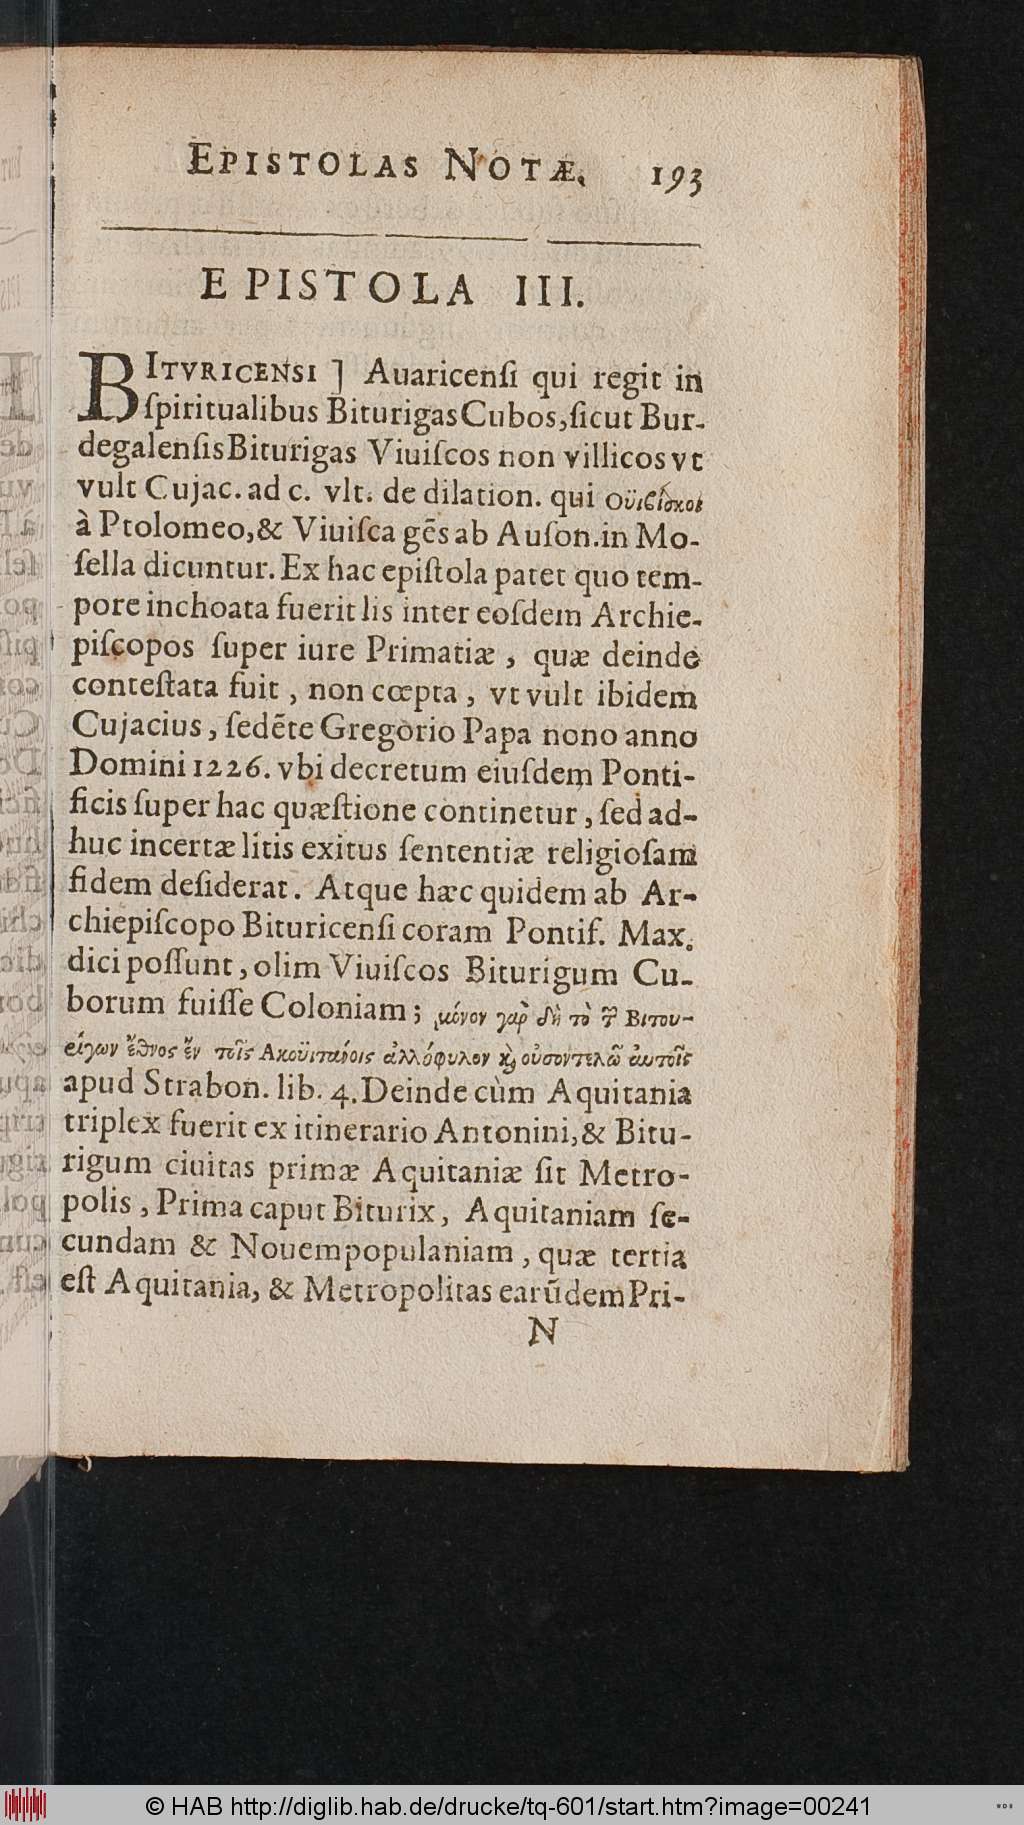 EPISTOLAS NOTÆ. 193
EPISTOLA III.
BITVRICENSI ] Auaricenſi qui regit in
ſpiritualibus Biturigas Cubos, ſicut Bur-
degalenſis Biturigas Viuiſcos non villicos vt
vult Cujac. ad c. vlt. de dilation. qui Οὐϊβίσκοι
à Ptolomeo, & Viuiſca gēs ab Auſon. in Mo-
ſella dicuntur. Ex hac epiſtola patet quo tem-
pore inchoata fuerit lis inter eoſdem Archie-
piſcopos ſuper iure Primatiæ, quæ deinde
conteſtata fuit, non cœpta, vt vult ibidem
Cujacius, ſedēte Gregorio Papa nono anno
Domini 1226. vbi decretum eiuſdem Ponti-
ficis ſuper hac quæſtione continetur, ſed ad-
huc incertæ litis exitus ſententiæ religioſam
fidem deſiderat. Atque hæc quidem ab Ar-
chiepiſcopo Bituricenſi coram Pontif. Max.
dici poſſunt, olim Viuiſcos Biturigum Cu-
borum fuiſſe Coloniam; μόνον γὰρ δὴ τὸ τῶν Βιτου-
είγων ἔθνος ἐν τοῖς Ακοϋιτανοις ἀλλόφυλον καὶ οὐσοντελῶ αὐτοῖς
apud Strabon. lib. 4. Deinde cùm Aquitania
triplex fuerit ex itinerario Antonini, & Bitu-
rigum ciuitas primæ Aquitaniæ ſit Metro-
polis, Prima caput Biturix, Aquitaniam ſe-
cundam & Nouempopulaniam, quæ tertia
eſt Aquitania, & Metropolitas earūdem Pri-
N
© HAB http://diglib.hab.de/drucke/tq-601/start.htm?image=00241